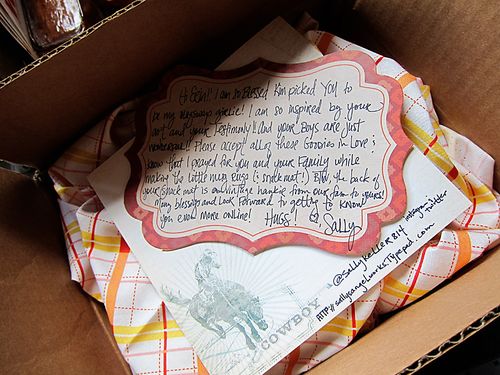 Hi Gen! I am so Blessed Kim picked YOU to
be my mugswap girlie! I am so inspired by your
art and your Testimony! and your Boys are just
Please accept all these Goodies in Love &
know that I prayed for you and your Family while
making the little mug rugs (& snack mat!) BTW, the back of
your snack mat is a vintage hankie from our fam to yours!
Many blessings and Look Forward to getting to know
you even more online! HUGS! Sally
@sallykeller814
instagram/twitter
HTTP://sallysangelworks.Typepad.com
COWBOY